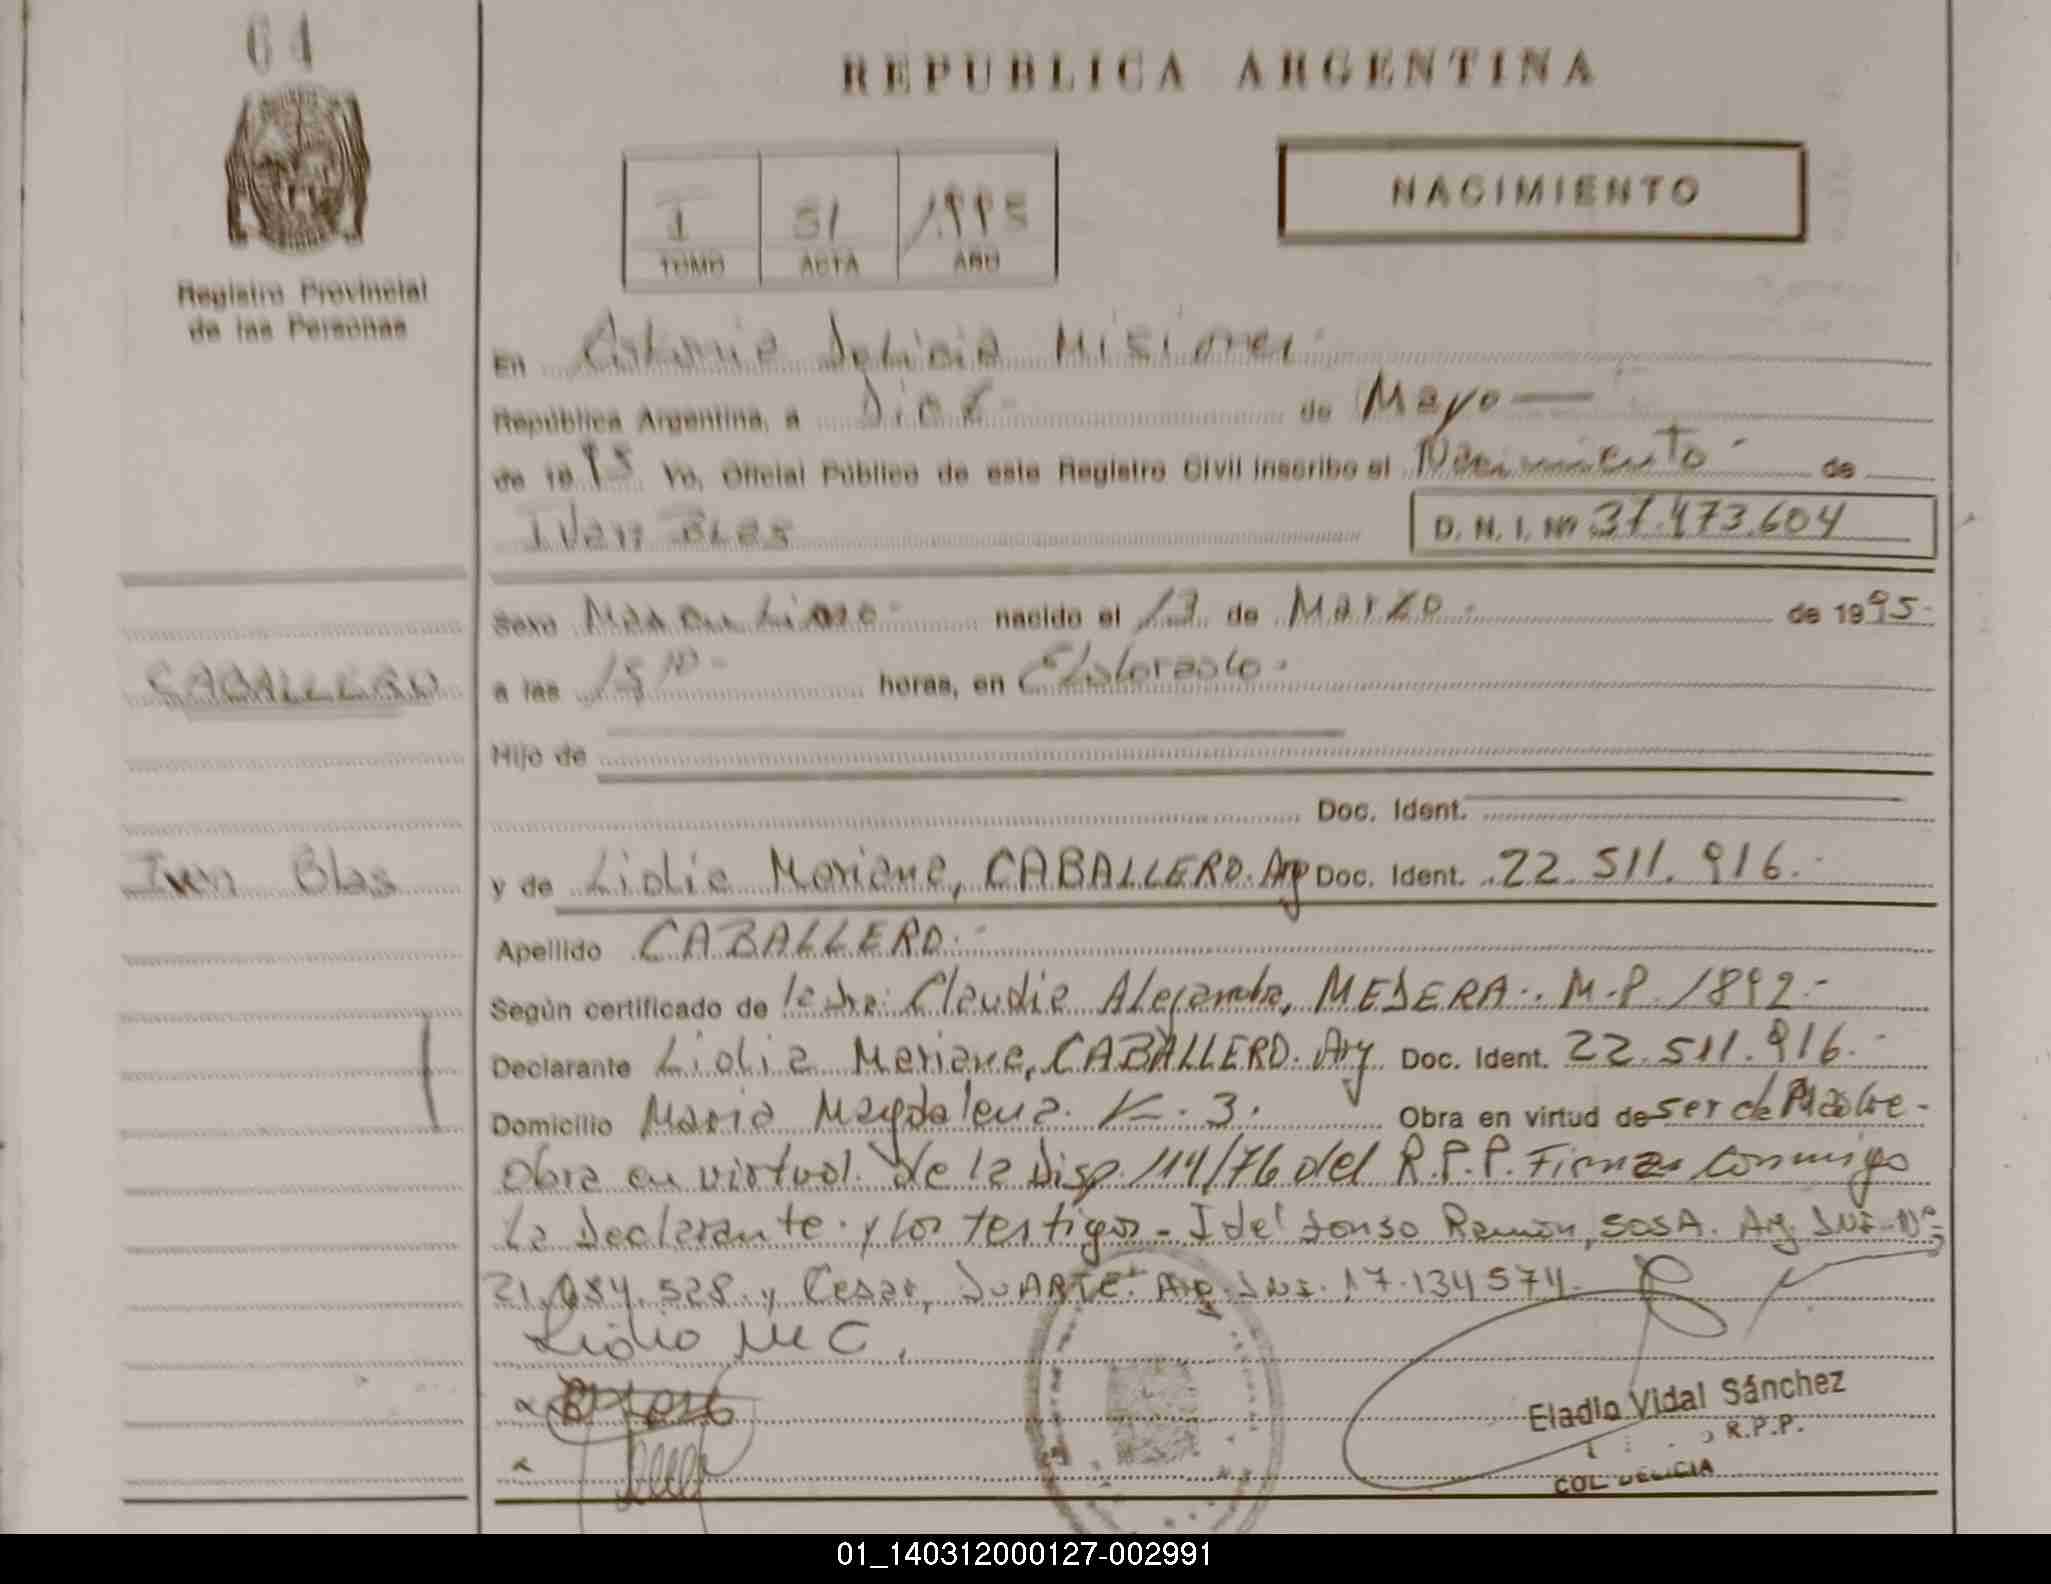 64
REPUBLICA ARGENTINA
I 51 1995
TOMO ACTA AÑO
NACIMIENTO
Registro Provincial
de las Personas
En Colonia Delicia Misiones.
República Argentina, a Diez de Mayo —
de 1995 Yo, Oficial Público de este Registro Civil inscribo el Nacimiento - de
Ivan Blas D. N. I. Nº 37.473.604
Sexo Masculino. nacido el 13 de Marzo. de 1995.
CABALLERO
a las 15 10 horas, en Eldorado.
Hijo de
Doc. Ident.
Ivan Blas
y de Lidia Mariana, CABALLERO. Arg Doc. Ident. 22.511.916.
Apellido CABALLERO.
Según certificado de la Dra: Claudia Alejandra, MEDERA. M.P. 1892.-
Declarante Lidia Mariana, CABALLERO. Arg Doc. Ident. 22.511.916.
Domicilio Maria Magdalena. K. 3. Obra en virtud de ser de Madre -
Obra en virtud. de la Disp. 114/76 del R.P.P. Firman conmigo
la Declarante. y los testigos - Idelfonso Ramón, SOSA. Arg. DNI-Nº
21.084.528. y Cesar, DUARTE. Arg. DNI. 17.134.574.
Lidia M C.
Eladio Vidal Sánchez
R.P.P.
COL. DELICIA
01_140312000127-002991